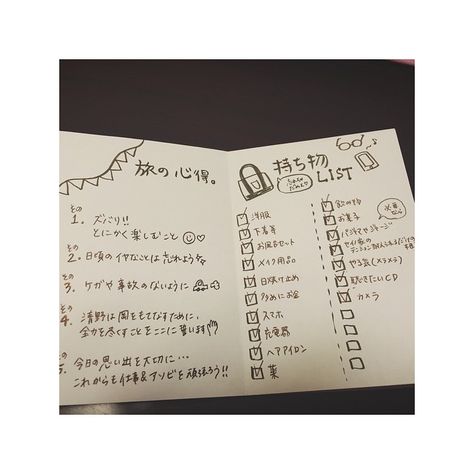 旅の心得。
その
1. ズバリ!!
とにかく楽しむこと
その
2. 日頃のイヤなことは忘れよう
その
3. ケガや事故のないように
その
4. 清野は岡をもてなすために、
全力を尽くすことをここに誓います
その
5. 今日の思い出を大切に…
これからも仕事&アソビを頑張ろう!!
持ち物
LIST
洋服
下着等
お風呂セット
メイク用品
日焼け止め
多めにお金
スマホ
充電器
ヘアアイロン
薬
飲み物
お菓子
パジャマ
やる気(メラメラ)
聴きたいCD
カメラ